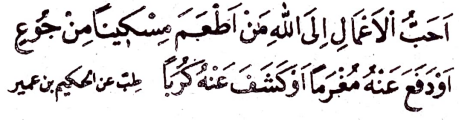 اَحَبُّ الْاَعْمَالِ اِلَى اللهِ مَنْ اَطْعَمَ مِسْكِينًا مِنْ جُوعٍ
اَوْ دَفَعَ عَنْهُ مُغْرَمًا اَوْ كَشَفَ عَنْهُ كُرَبًا طب عن الحكيم بن عمير